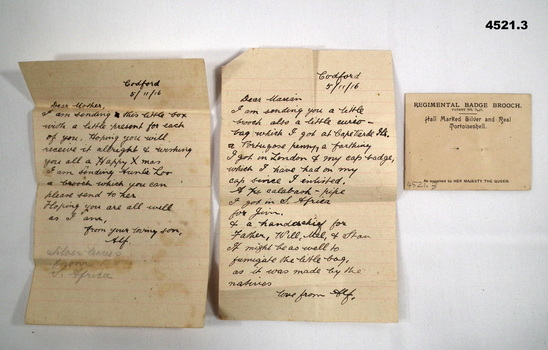 4521.3
Codford
5/11/16
Dear Mother,
I am sending this little box
with a little present for each
of you. Hoping you will
receive it allright & wishing
you all a Happy X mas
I am sending Auntie Loo
a brooch which you can
please send to her
Hoping you are all well
as I am,
From your loving son,
Alf.
S. Africa
Codford
5/11/16
Dear Marian
I am sending you a little
brooch also a little curio-
bag which I got at Cape Verde Ils.
a Portugese penny, a farthing
I got in London & my cap badge,
which I have had on my
cap since I enlisted.
A calabash-pipe
I got in S. Africa
for Jim.
& a handerchief for
Father, Will, Mel, & Stan
It might be as well to
fumigate the little bag,
as it was made by the
natives
Love from Alf.
REGIMENTAL BADGE BROOCH.
Hall Marked Silver and Real
Tortoiseshell.
As supplied to HER MAJESTY THE QUEEN.
4521.3